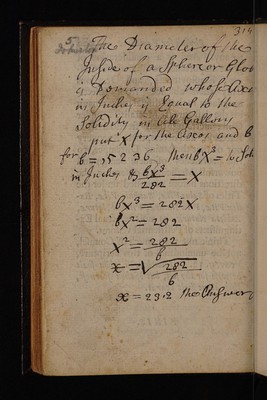 314
The Diameter of the
Inside of a Sphere or Glob
is Demanded whose Axis
in Inches is Equal to the
Solidity in Ale Gallons
put X for the Axes and b
for b = ,5236 then bX³ = to
in Inches & bX³/282 = X
bX³ = 282X
bX² = 282
X² = 282/b
x = √282/b
x = 23.2 the Answer